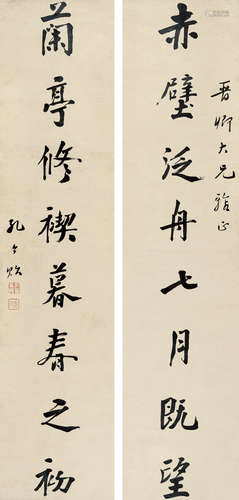 晋卿大兄雅正
赤壁泛舟七月既望
蘭亭修禊暮春之初
孔令貽